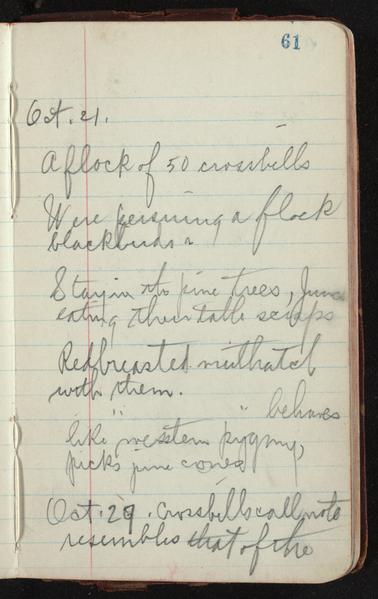 61
Oct. 21.
A flock of 50 crossbills
Were persuing a flock
blackbirds.
Stay in the pine trees,
eating their table scraps
Redbreasted nuthatch
with them.
" " behaves
like western pygmy,
picks pine cones
Oct. 29. Crossbills call note
resembles that of the